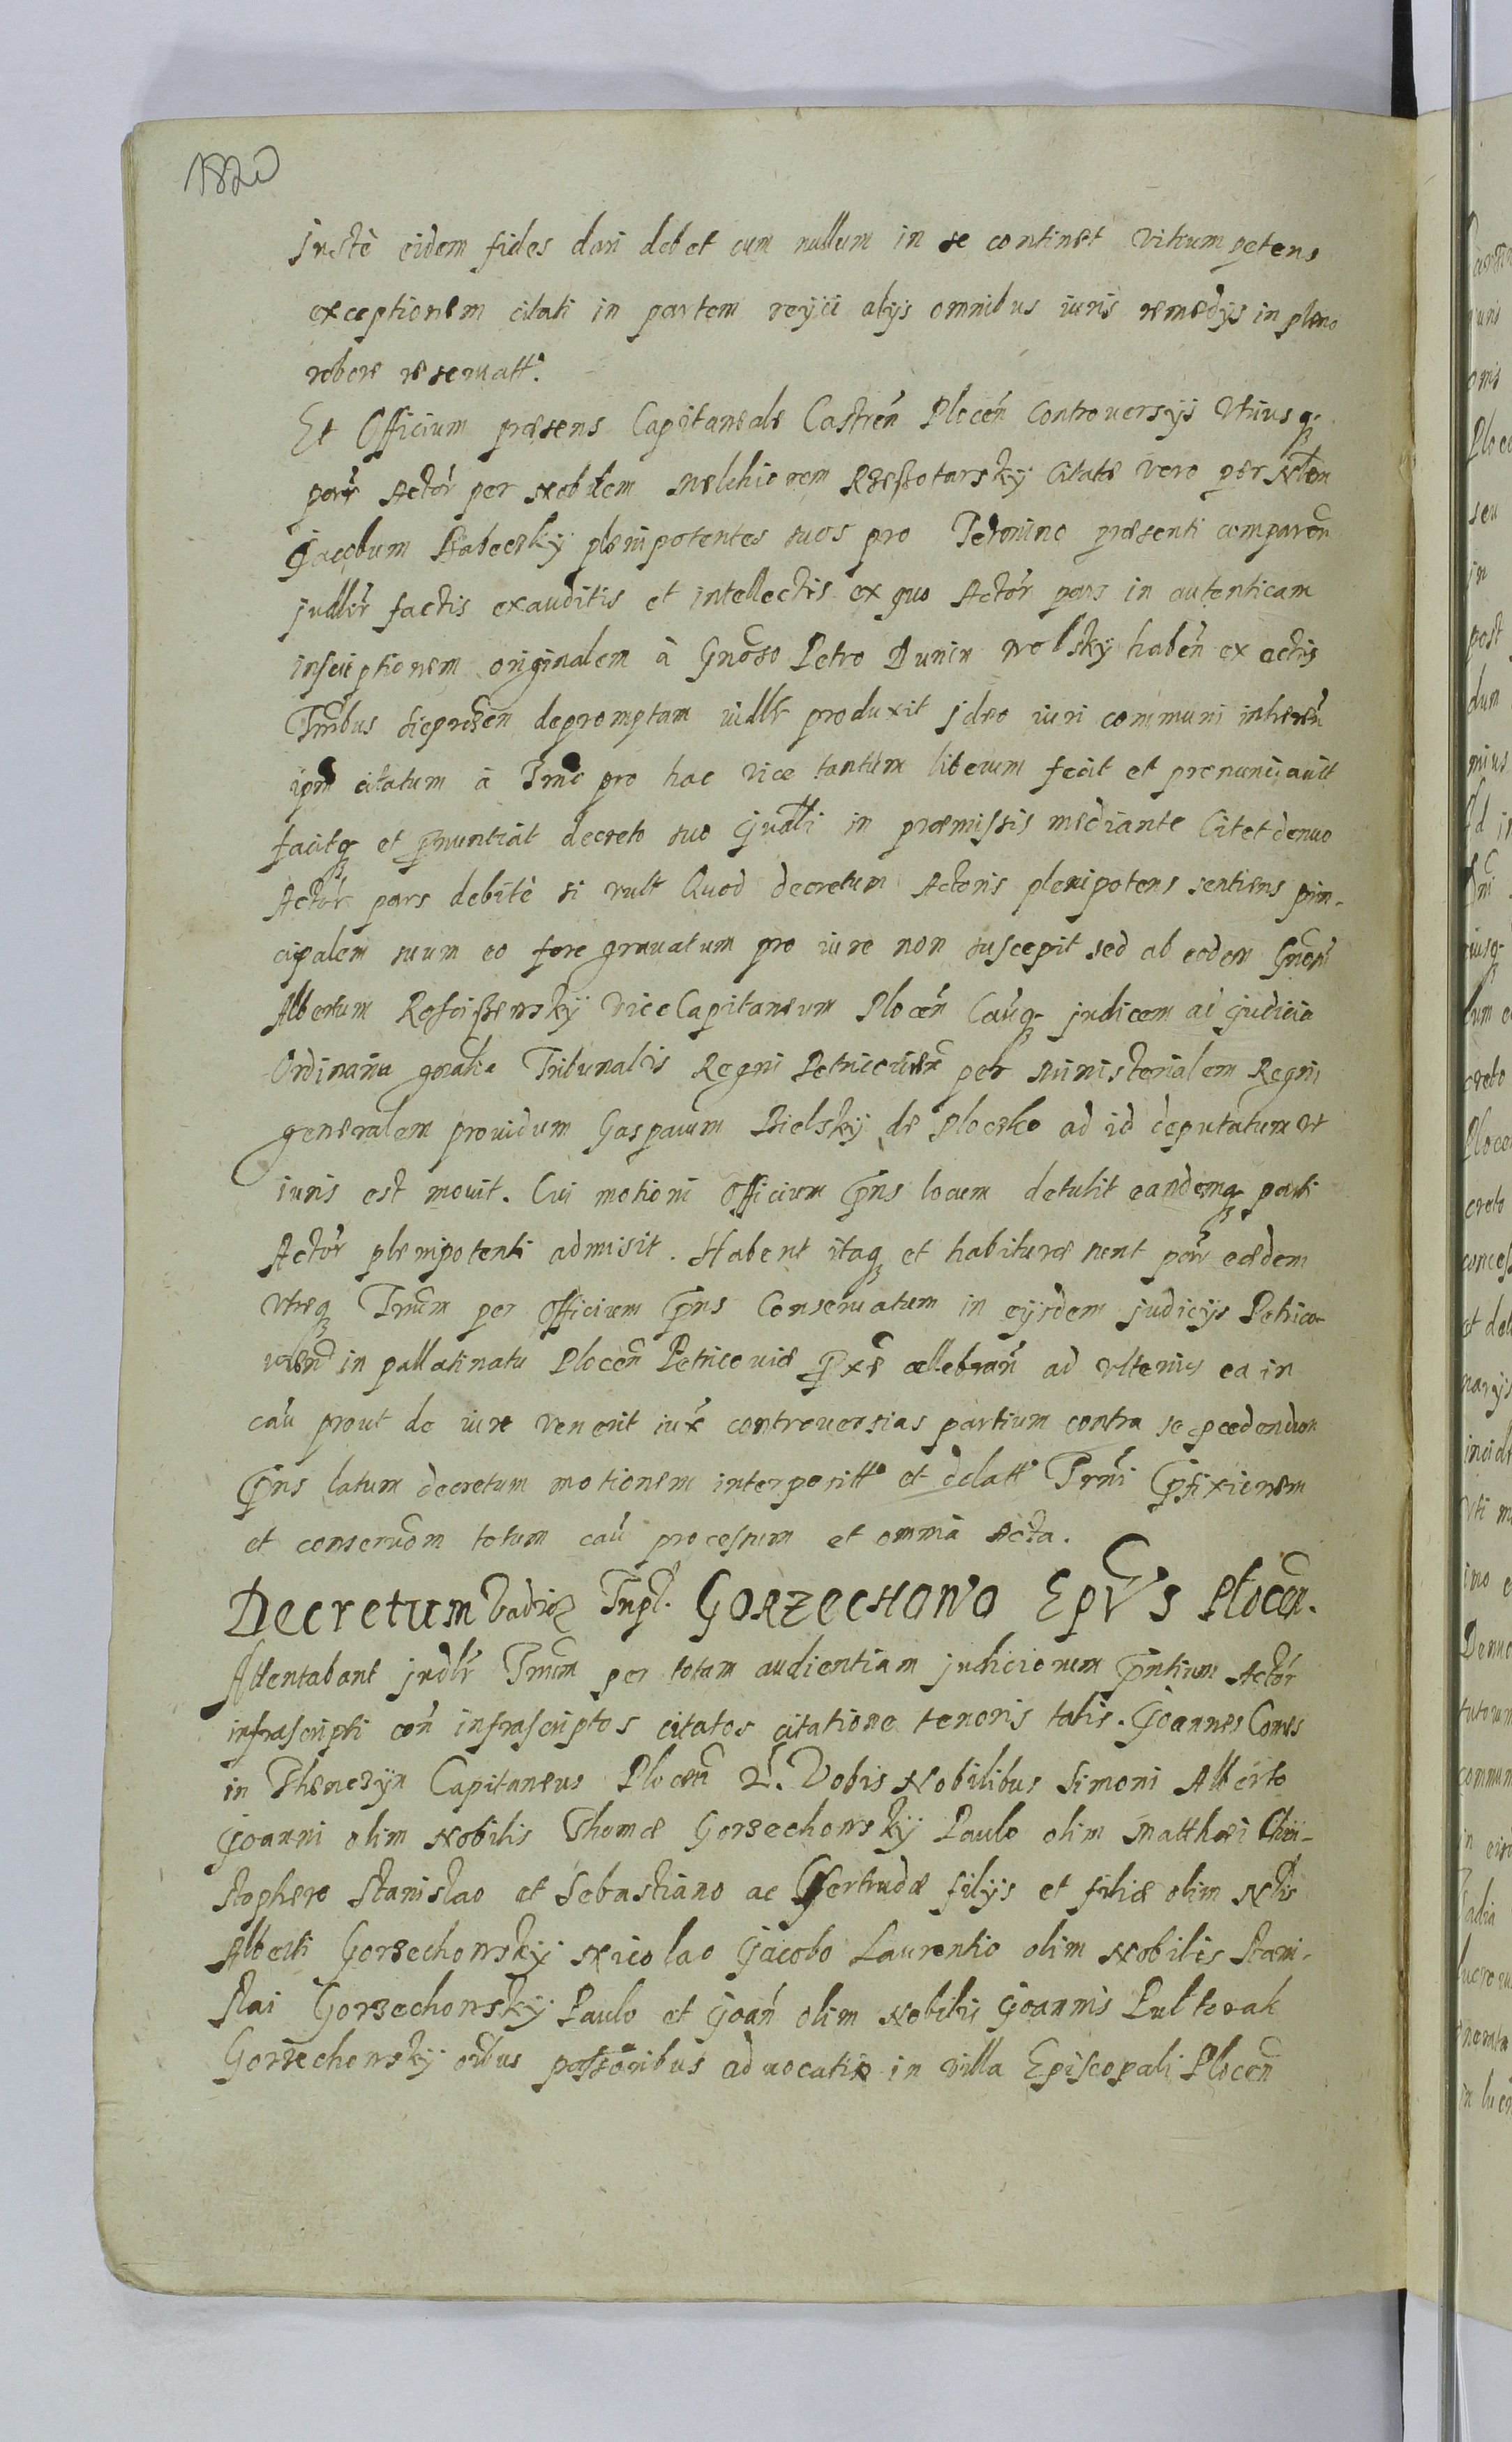 1820
Justè eidem fides dari debet cum nullum in se continet vitium petens
exceptionem citati in partem reijci alijs omnibus iuris remedijs in pleno
robore reseruatt.
Et Officium praesens Capitaneale Castreń Ploceń Controuersijs Vtriusq
partis Actoŕ per Nobilem Melchiorem Rzeszotarsky Citatae vero per Nblem
Jacobum plenipotentes suos pro Termino praesenti comparen
judlr factis exauditis et intellectis ex quo Actor pars in autenticam
inscriptionem originalem à Gnoso Petro Dunin Wolsky habeń ex actis
depromptam iudlr produxit jdeo iuri communi inhereń
ipm citatum à Tmo pro hac vice tantùm liberum fecit et pronunciauit
facitq et pnuntiat decreto suo judli in praemissis mediante Citet denuo
Actor pars debitè si vult Quod decretum Actoris plenipotens sentiens prin-
cipalem suum eo fore grauatum pro iure non suscepit sed ab eodem Gnosu
Albertum Rosciszewsky ViceCapitaneum Ploceń Cauq judicem ad judicia
Ordinaria gnalia Tribunalis Regni Petricouien per Ministerialem Regni
generalem prouidum Gasparum Bielsky de Ploczko ad id deputatum vt
iuris est mouit. Cui motioni Officium pns locum detulit eandemq parti
Actor plenipotenti admisit. Habent itaq et habiturae sunt partes eaedem
vtraeq Tmum per Officium pns Conseruatum in eijsdem judicijs Petrico-
uien in pallatinatu Plocen Petricouiae pxe cellebrań ad vlterius ea in
caú prout de iure venerit iux controuersias partium contra se pcedendum
pns latum decretum motionem interpositt et delatt Tmi pfixionem
et conseruõm totum caú processum et omnia Acta.
Decretum Vadior Tripl. GORZECHOWO EpVs Plocen.
Attentabant judlr Tmum per totam audientiam judiciorum pntium Actor
infrascripti coń infrascriptos citatos citatione tenoris talis. Joannes Comes
in Thenczyn Capitaneus Plocen. Vobis Nobilibus Simoni Alberto
Joanni olim Nobilis Thomae Gorzechowsky Paulo olim Matthaei Chri-
stophero Stanislao et Sebastiano ac Gertrudae filijs et filiae olim Nblis
Alberti Gorzechowsky Nicolao Jacobo Laurentio olim Nobilis Stani-
slai Gorzechowsky Paulo et Joań olim Nobilis Joannis Pultorak
Gorzechowsky oibus possoribus aduocatiae in villa Episcopali Plocen